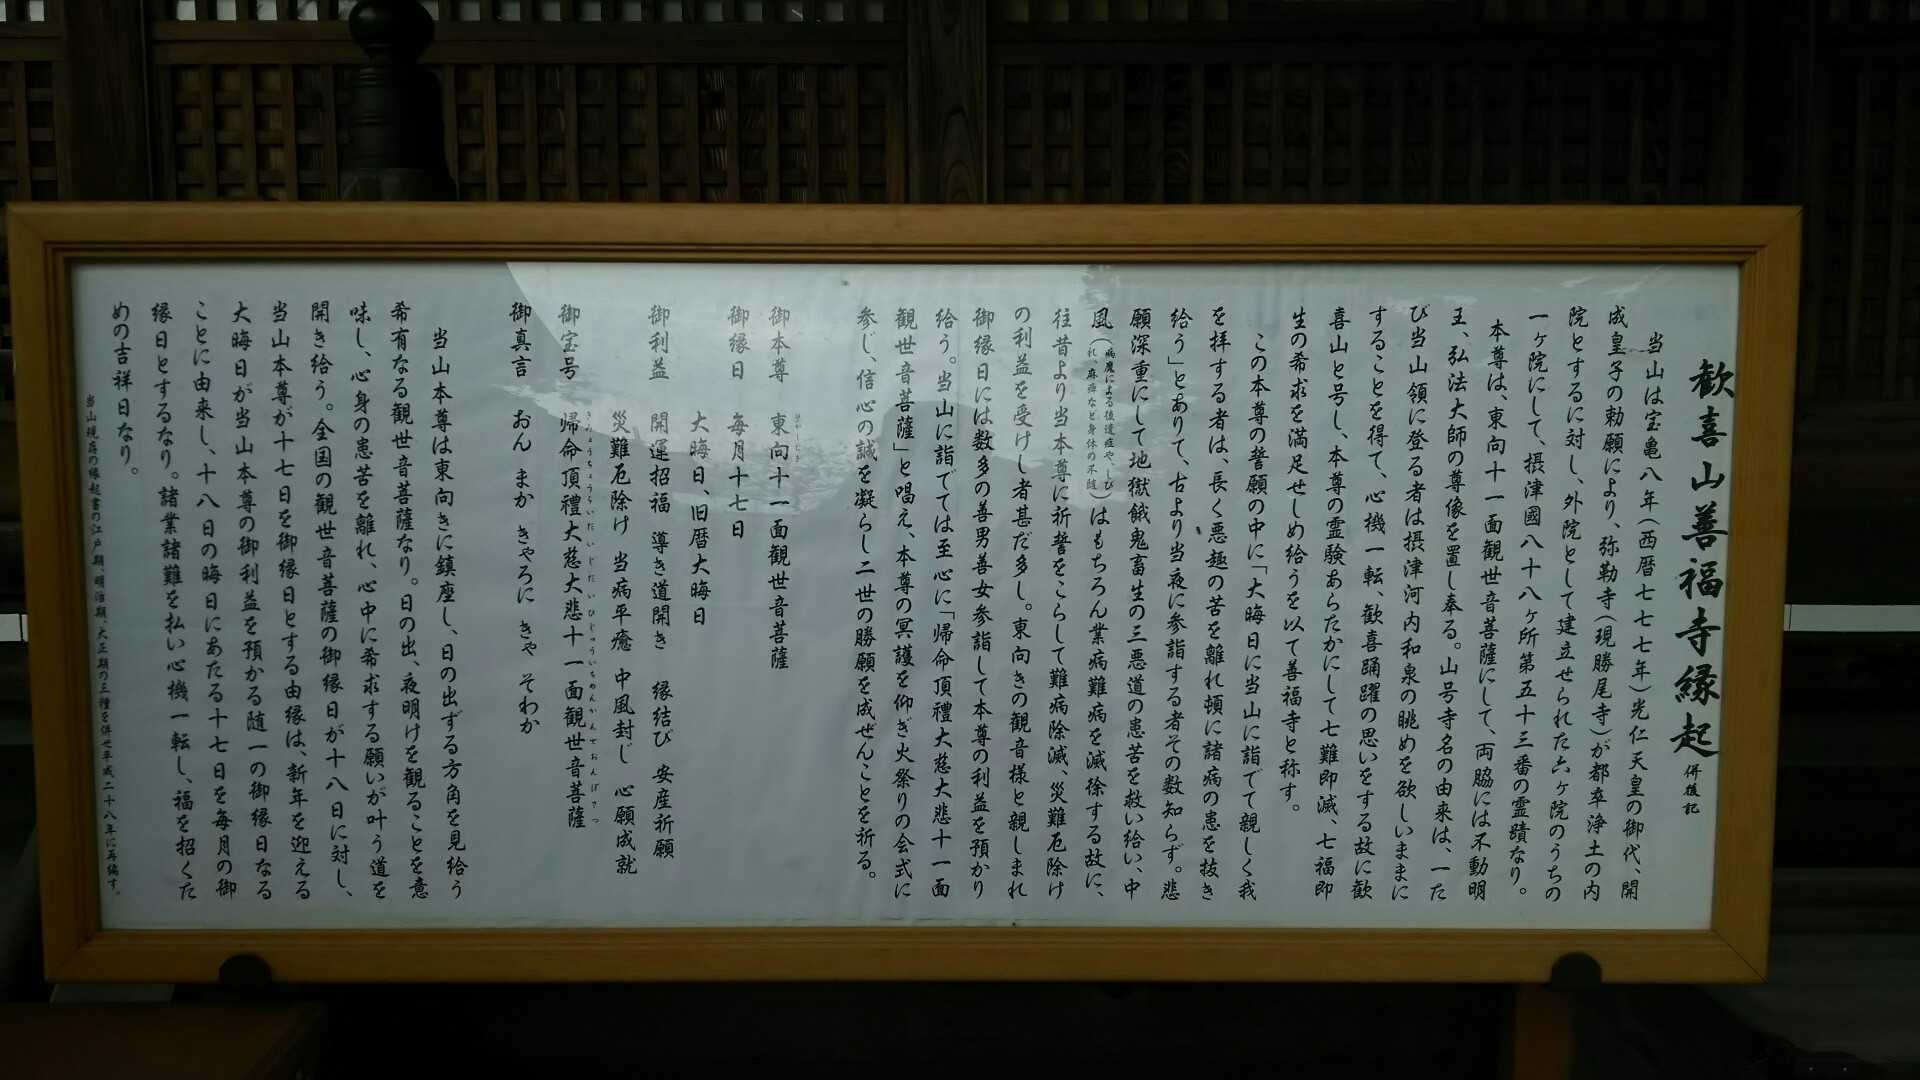 歓喜山善福寺縁起 併後記
当山は宝亀八年(西暦七七七年)光仁天皇の御代、開
成皇子の勅願により、弥勒寺(現勝尾寺)が都卒浄土の内
院とするに対し、外院として建立せられた六ヶ院のうちの
一ヶ院にして、摂津國八十八ヶ所第五十三番の霊蹟なり。
本尊は、東向十一面観世音菩薩にして、両脇には不動明
王、弘法大師の尊像を置し奉る。山号寺名の由来は、一た
び当山領に登る者は摂津河内和泉の眺めを欲しいままに
することを得て、心機一転、歓喜踊躍の思いをする故に歓
喜山と号し、本尊の霊験あらたかにして七難即滅、七福即
生の希求を満足せしめ給うを以て善福寺と称す。
この本尊の誓願の中に「大晦日に当山に詣でて親しく我
を拝する者は、長く悪趣の苦を離れ頓に諸病の患を抜き
給う」とありて、古より当夜に参詣する者その数知らず。悲
願深重にして地獄餓鬼畜生の三悪道の患苦を救い給い、中
風(病魔による後遺症や、しびれ、麻痺など身体の不随)はもちろん業病難病を滅徐する故に、
往昔より当本尊に祈誓をこらして難病除滅、災難厄除け
の利益を受けし者甚だ多し。東向きの観音様と親しまれ
御縁日には数多の善男善女参詣して本尊の利益を預かり
給う。当山に詣でては至心に「帰命頂禮大慈大悲十一面
観世音菩薩」と唱え、本尊の冥護を仰ぎ火祭りの会式に
参じ、信心の誠を凝らし二世の勝願を成ぜんことを祈る。
御本尊 東向十一面観世音菩薩
御縁日 毎月十七日
大晦日、旧暦大晦日
御利益 開運招福 導き道開き 縁結び 安産祈願
災難厄除け 当病平癒 中風封じ 心願成就
御宝号 帰命頂禮大慈大悲十一面観世音菩薩
御真言 おん まか きゃろに きゃ そわか
当山本尊は東向きに鎮座し、日の出ずる方角を見給う
希有なる観世音菩薩なり。日の出、夜明けを観ることを意
味し、心身の患苦を離れ、心中に希求する願いが叶う道を
開き給う。全国の観世音菩薩の御縁日が十八日に対し、
当山本尊が十七日を御縁日とする由縁は、新年を迎える
大晦日が当山本尊の御利益を預かる随一の御縁日なる
ことに由来し、十八日の晦日にあたる十七日を毎月の御
縁日とするなり。諸業諸難を払い心機一転し、福を招くた
めの吉祥日なり。
当山現存の縁起書の江戸期、明治期、大正期の三種を併せ平成二十八年に再編す。